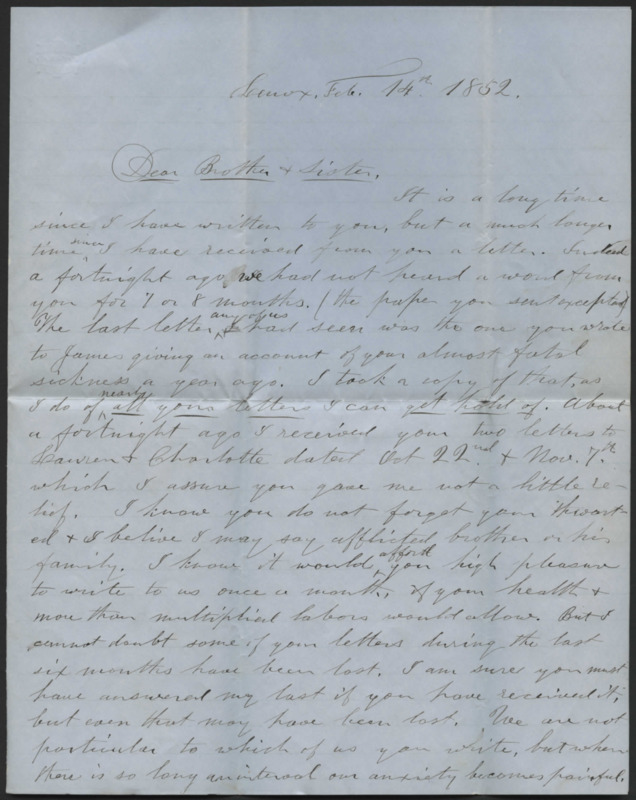 Lenox, Feb. 14th 1852.
Dear Brother & Sister,
It is a long time
since I have written to you, but a much longer
time since I have received from you a letter. Indeed
a fortnight ago we had not heard a word from
you for 7 or 8 months. (the paper you sent excepted)
The last letter any of us had seen was the one you wrote
to James giving an account of your almost fatal
sickness a year ago. I took a copy of that, as
I do of nearly all yours letters I can get hold of. About
a fortnight ago I received your two letters to
Lauren & Charlotte dated Oct 22nd & Nov. 7th
which I assure you gave me not a little re-
lief. I know you do not forget your thwart-
ed & I belive I may say afflicted brother or his
family. I know it would afford you high pleasure
to write to us once a month, if your health &
more than multiplied labors would allow. But I
cannot doubt some of your letters during the last
six months have been lost. I am sure you must
have answered my last if you have received it;
but even that may have been lost. We are not
particular to which of us you write, but when
there is so long an interval our anxiety becomes painful.